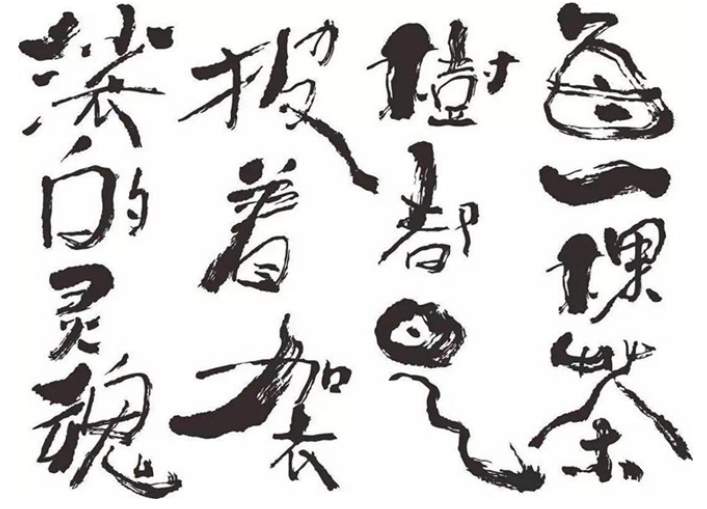 每一棵茶
樹都是
披着袈
裟的灵魂